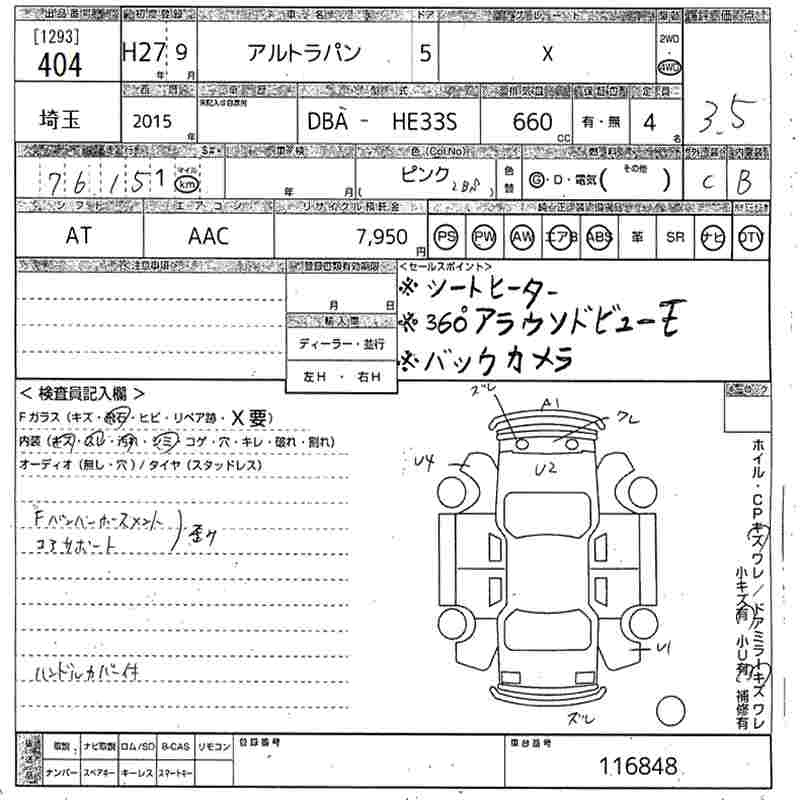 出品番号 初度登録 車名 ドア グレード 駆動 評価点
[1293]
404
H27 年 9 月 アルトラパン 5 X 2WD ・ 4WD 3.5
埼玉 2015 年 DBA - HE33S 660 CC 有・無 4 名
型式 排気量 定員
走行 車検 色 (Col No) 燃料 外装 内装
76,151 マイル km 年 月 ピンク 色替 G・D・電気 ( その他 ) C B
シフト エアコン リサイクル預託金 純正装備品
AT AAC 7,950 円 PS PW AW エアB ABS 革 SR ナビ DTV
注意事項 登録書類有効期限 <セールスポイント>
月 日
※ シートヒーター
※ 360°アラウンドビューモ
※ バックカメラ
輸入車
ディーラー・並行
左H ・ 右H
<検査員記入欄>
Fガラス (キズ・飛石・ヒビ・リペア跡・X要)
内装 (キズ・スレ・汚れ・シミ・コゲ・穴・キレ・破れ・割れ)
オーディオ (無し・穴) / タイヤ (スタッドレス)
Fバンパーホースメント
コアサポート
歪ケ
ハンドルカバー付
ズレ A1 ワレ
U4 U2
U1
ズレ
ホイル・CPキズワレ/ドアミラーキズワレ
小キズ有 小U有 補修有
取説 ナビ取説 ロム/SD B-CAS リモコン 登録番号 車台番号
ナンバー スペアキー キーレス スマートキー 116848